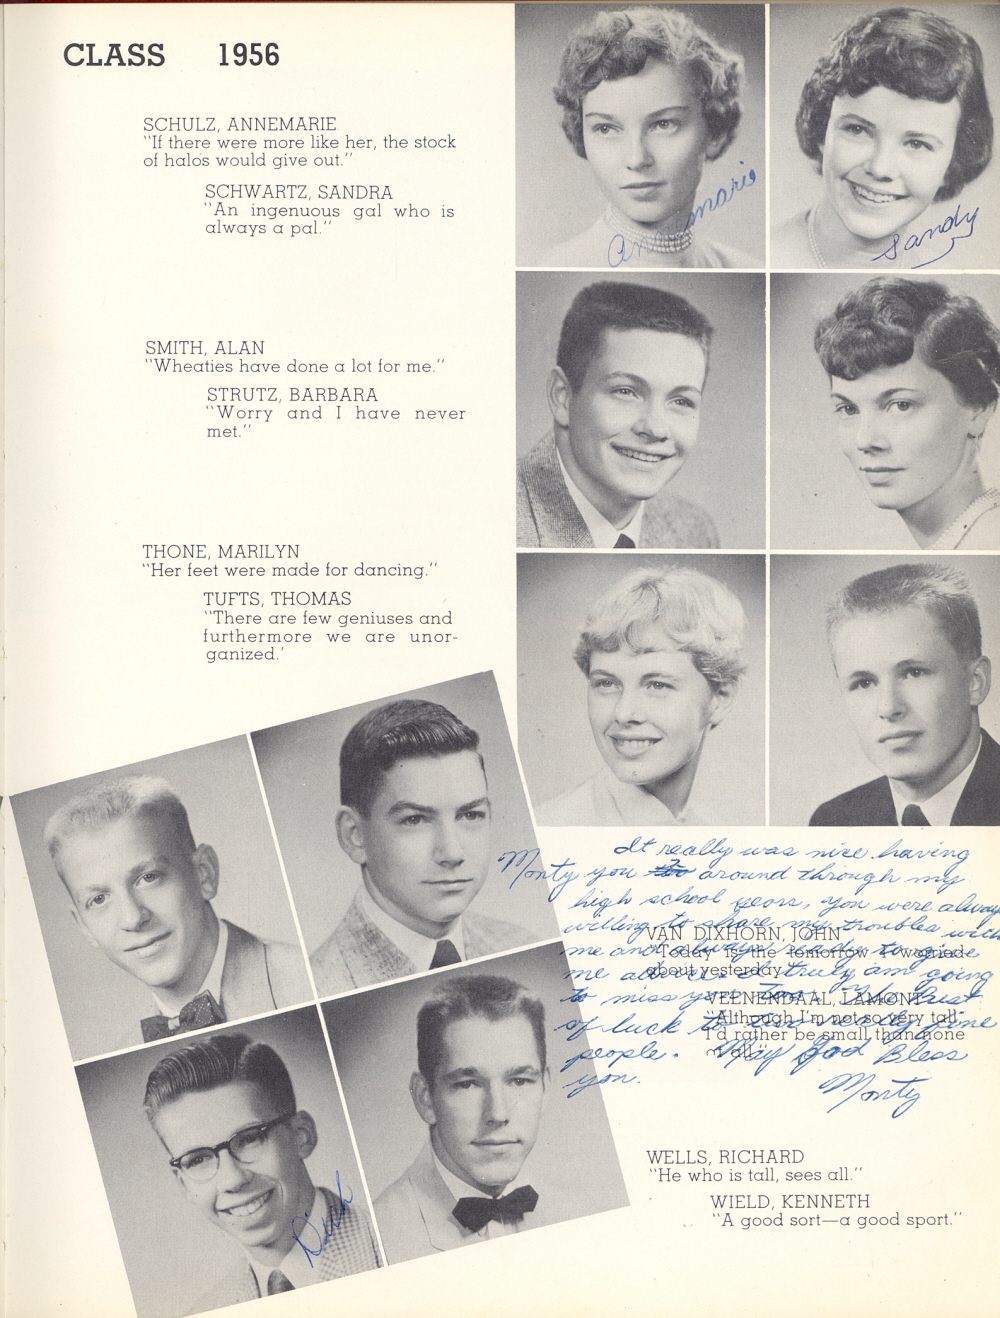 CLASS 1956
SCHULZ, ANNEMARIE
"If there were more like her, the stock
of halos would give out."
SCHWARTZ, SANDRA
"An ingenuous gal who is
always a pal."
Annemarie
Sandy
SMITH, ALAN
"Wheaties have done a lot for me."
STRUTZ, BARBARA
"Worry and I have never
met."
THONE, MARILYN
"Her feet were made for dancing."
TUFTS, THOMAS
"There are few geniuses and
furthermore we are unor-
ganized.'
It really was nice having
Monty you around through my
high school years, you were always
willing to share my troubles with
me and always ready to give
me advice. I truly am going
to miss you. best
of luck to two really fine
people. May God Bless
you.
Monty
VAN DIXHORN, JOHN
"Today is the tomorrow I worried
about yesterday."
VEENENDAAL, LAMONT
"Although I'm not so very tall,
I'd rather be small than none
at all."
Dick
WELLS, RICHARD
"He who is tall, sees all."
WIELD, KENNETH
"A good sort—a good sport."